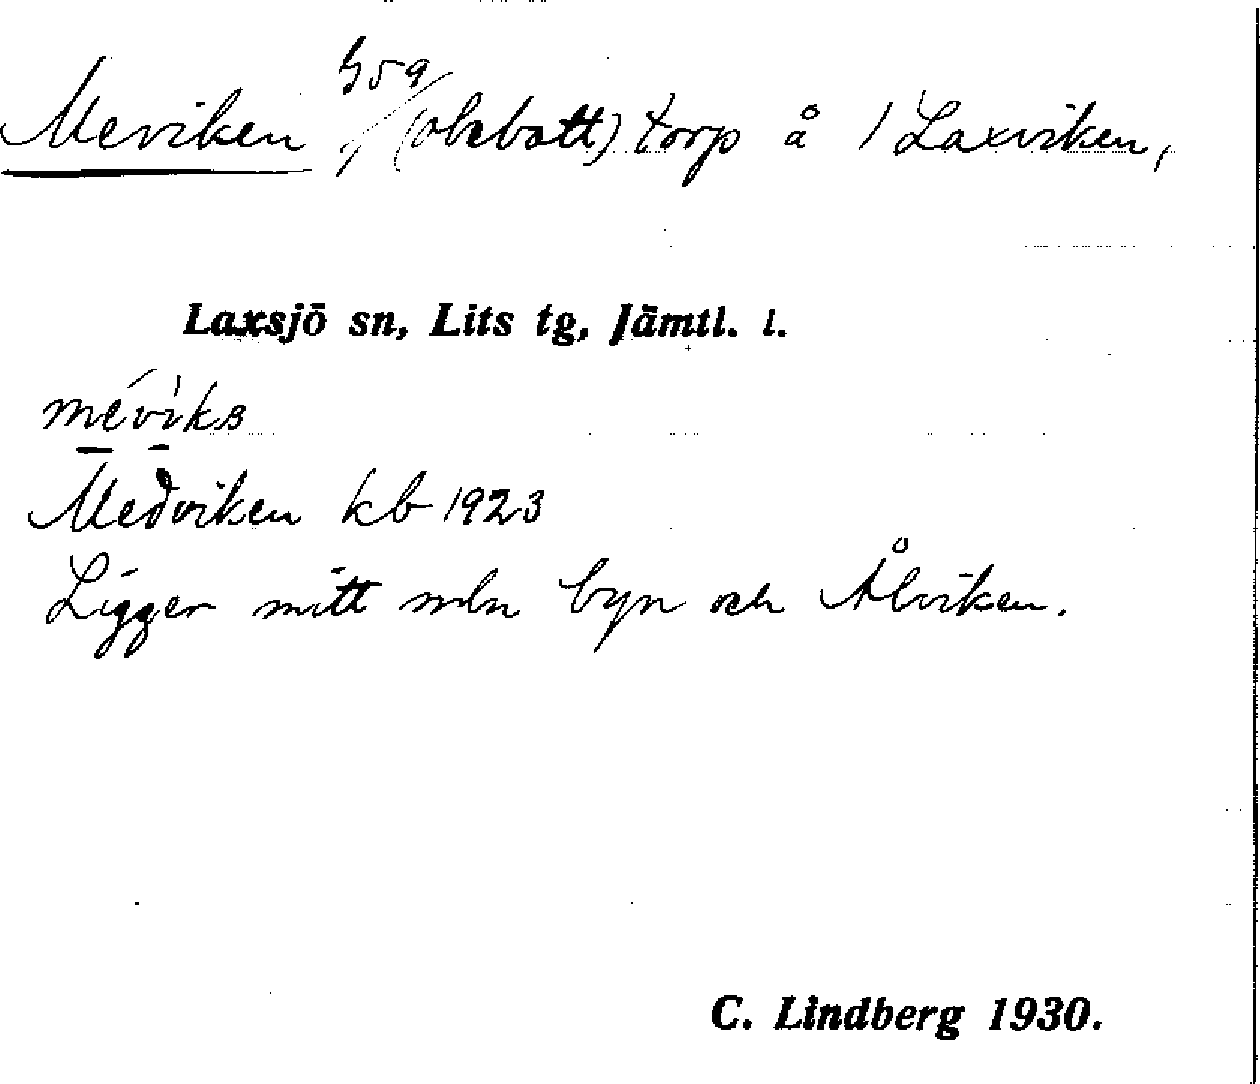 Meviken, 459 (obebott) torp å 1 Laxviken,
Laxsjö sn, Lits tg, Jämtl. l.
Medviken kb 1923
Ligger mitt mln byn och Ålviken.
C. Lindberg 1930.